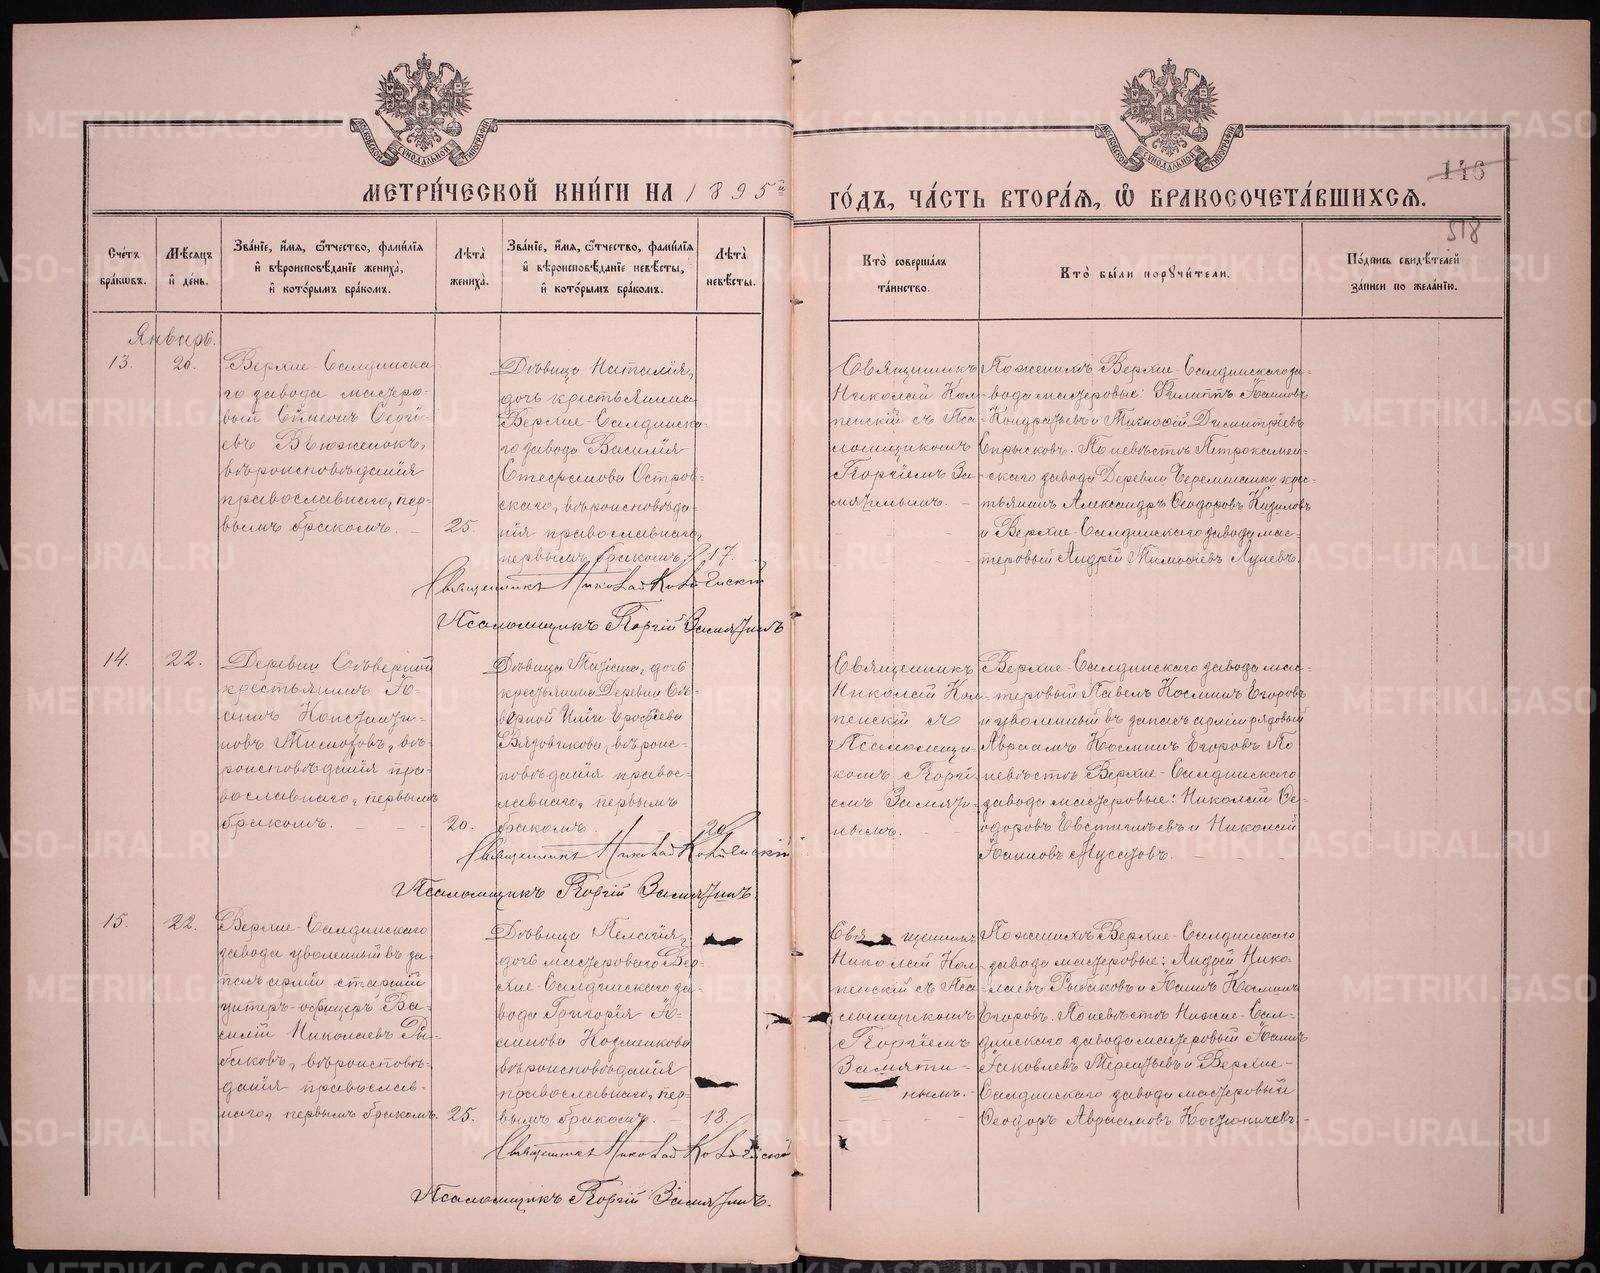 МЕТРИ́ЧЕСКОЙ КНИ́ГИ НА 1895й
ГО́ДЪ, ЧА́СТЬ ВТОРА́Я, Ѡ БРАКОСОЧЕТА́ВШИХСЯ.
146
518
Сче́тъ бра́кѡвъ.
Мѣ́сяцъ и҆ де́нь.
Зва́нїе, и҆́мя, ѻ҆́тчество, фами́лїя и҆ вѣроисповѣ́данїе жениха̀, и҆ кото́рымъ бра́комъ.
Лѣта̀ жениха̀.
Зва́нїе, и҆́мя, ѻ҆́тчество, фами́лїя и҆ вѣроисповѣ́данїе невѣ́сты, и҆ кото́рымъ бра́комъ.
Лѣта̀ невѣ́сты.
Кто̀ соверша́лъ та́инство.
Кто̀ бы́ли порꙋчи́тели.
По́дпись свидѣ́телей за́писи по жела́нїю.
Январь.
13.
20.
Верхне-Салдинска-
го завода мастеро-
вый Симеонъ Сергі-
евъ Вьюженокъ,
вѣроисповѣданія
православнаго, пер-
вымъ бракомъ.
25.
Дѣвица Наталія,
дочь крестьянина
Верхне-Салдинска-
го завода Василія
Стефанова Остров-
скаго, вѣроисповѣда-
нія православнаго,
первымъ бракомъ.
17.
Священникъ Николай Холпенскій
Псаломщикъ Георгій Замятинъ
Священникъ
Николай Кол-
пенскій съ Пса-
ломщикомъ
Георгіемъ За-
мятинымъ.
По женихѣ Верхне-Салдинскаго за-
вода мастеровые: Филиппъ Іоанновъ
Кондратьевъ и Димитріевъ
Спрысковъ. По невѣстѣ Петрокамен-
скаго завода Деревни Черемшанки крес-
тьянинъ Александръ Ѳеодоровъ
и Верхне-Салдинскаго завода мас-
теровый Андрей Тимофѣевъ
14.
22.
Деревни Сѣверной
крестьянинъ Іо-
аннъ Константи-
новъ Тимофѣевъ, вѣ-
роисповѣданія пра-
вославнаго, первымъ
бракомъ.
20.
Дѣвица Таисія, дочь
крестьянина Деревни Сѣ-
верной Иліи Ерофѣева
вѣроис-
повѣданія правос-
лавнаго, первымъ
бракомъ.
20.
Священникъ Николай Колпенскій
Псаломщикъ Георгій Замятинъ.
Священникъ
Николай Кол-
пенскій съ
Псаломщи-
комъ Георгі-
емъ Замяти-
нымъ.
Верхне-Салдинскаго завода мас-
теровый Павелъ Косминъ Егоровъ
и уволенный въ запасъ арміи рядовый
Авраамъ Косминъ Егоровъ По
невѣстѣ Верхне-Салдинскаго
завода мастеровые: Николай Ѳе-
одоровъ Евстигнѣевъ и Николай
Іоанновъ Мусатовъ.
15.
22.
Верхне-Салдинскаго
завода уволенный въ за-
пасъ арміи старшій
унтеръ-офицеръ Ва-
силій Николаевъ Ры-
баковъ, вѣроисповѣ-
данія православ-
наго, первымъ бракомъ.
25.
Дѣвица Пелагія,
дочь мастероваго Вер-
хне-Салдинскаго за-
вода Григорія Іо-
аннова Кузменкова
вѣроисповѣданія
православнаго, пер-
вымъ бракомъ.
18.
Священникъ Николай Колпенскій
Псаломщикъ Георгій Замятинъ.
Священникъ
Николай Кол-
пенскій съ Пса-
ломщикомъ
Георгіемъ
Замяти-
нымъ.
По женихѣ Верхне-Салдинскаго
завода мастеровые: Андрей Нико-
лаевъ Рыбаковъ и Іоаннъ Косминъ
Егоровъ. По невѣстѣ Нижне-Сал-
динскаго завода мастеровый Іоаннъ
Іаковлевъ Терентьевъ и Верхне-
Салдинскаго завода мастеровый
Ѳеодоръ Авраамовъ